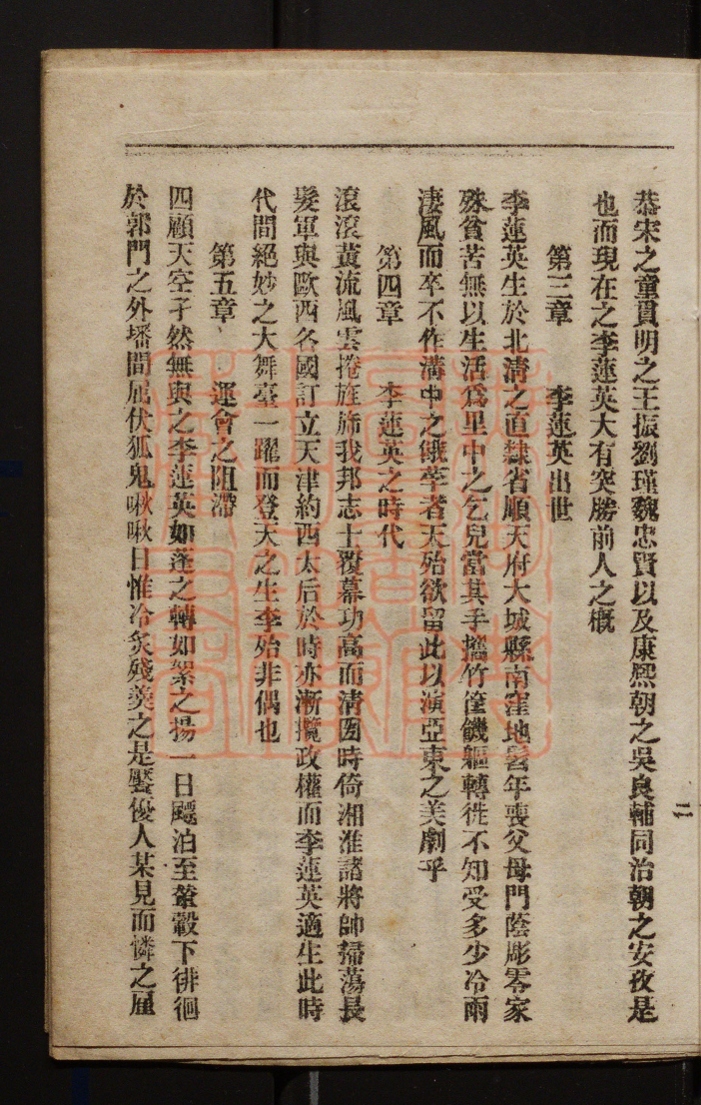 恭宋之童貫明之王振劉瑾魏忠賢以及康熙朝之吳良輔同治朝之安孜是
也而現在之李蓮英大有突勝前人之概
第三章　李蓮英出世
李蓮英生於北淸之直隸省順天府大城縣南窪地髫年喪父母門蔭彫零家
殊貧苦無以生活爲里中之乞兒當其手攜竹筐饑軀轉徙不知受多少冷雨
凄風而卒不作溝中之餓莩者天殆欲留此以演亞東之美劇乎
第四章　李蓮英之時代
滾滾黃流風雲捲旌旆我邦志士覆幕功高而淸國時倚湘淮諸將帥掃蕩長
髮軍與歐西各國訂立天津約西太后於時亦漸攬政權而李蓮英適生此時
代間絕妙之大舞臺一躍而登天之生李殆非偶也
第五章　運會之阻滯
四顧天空孑然無與之李蓮英如蓬之轉如絮之揚一日飄泊至輦轂下徘徊
於郭門之外墦間屈伏狐鬼啾啾日惟冷炙殘羹之是饜優人某見而憐之
二